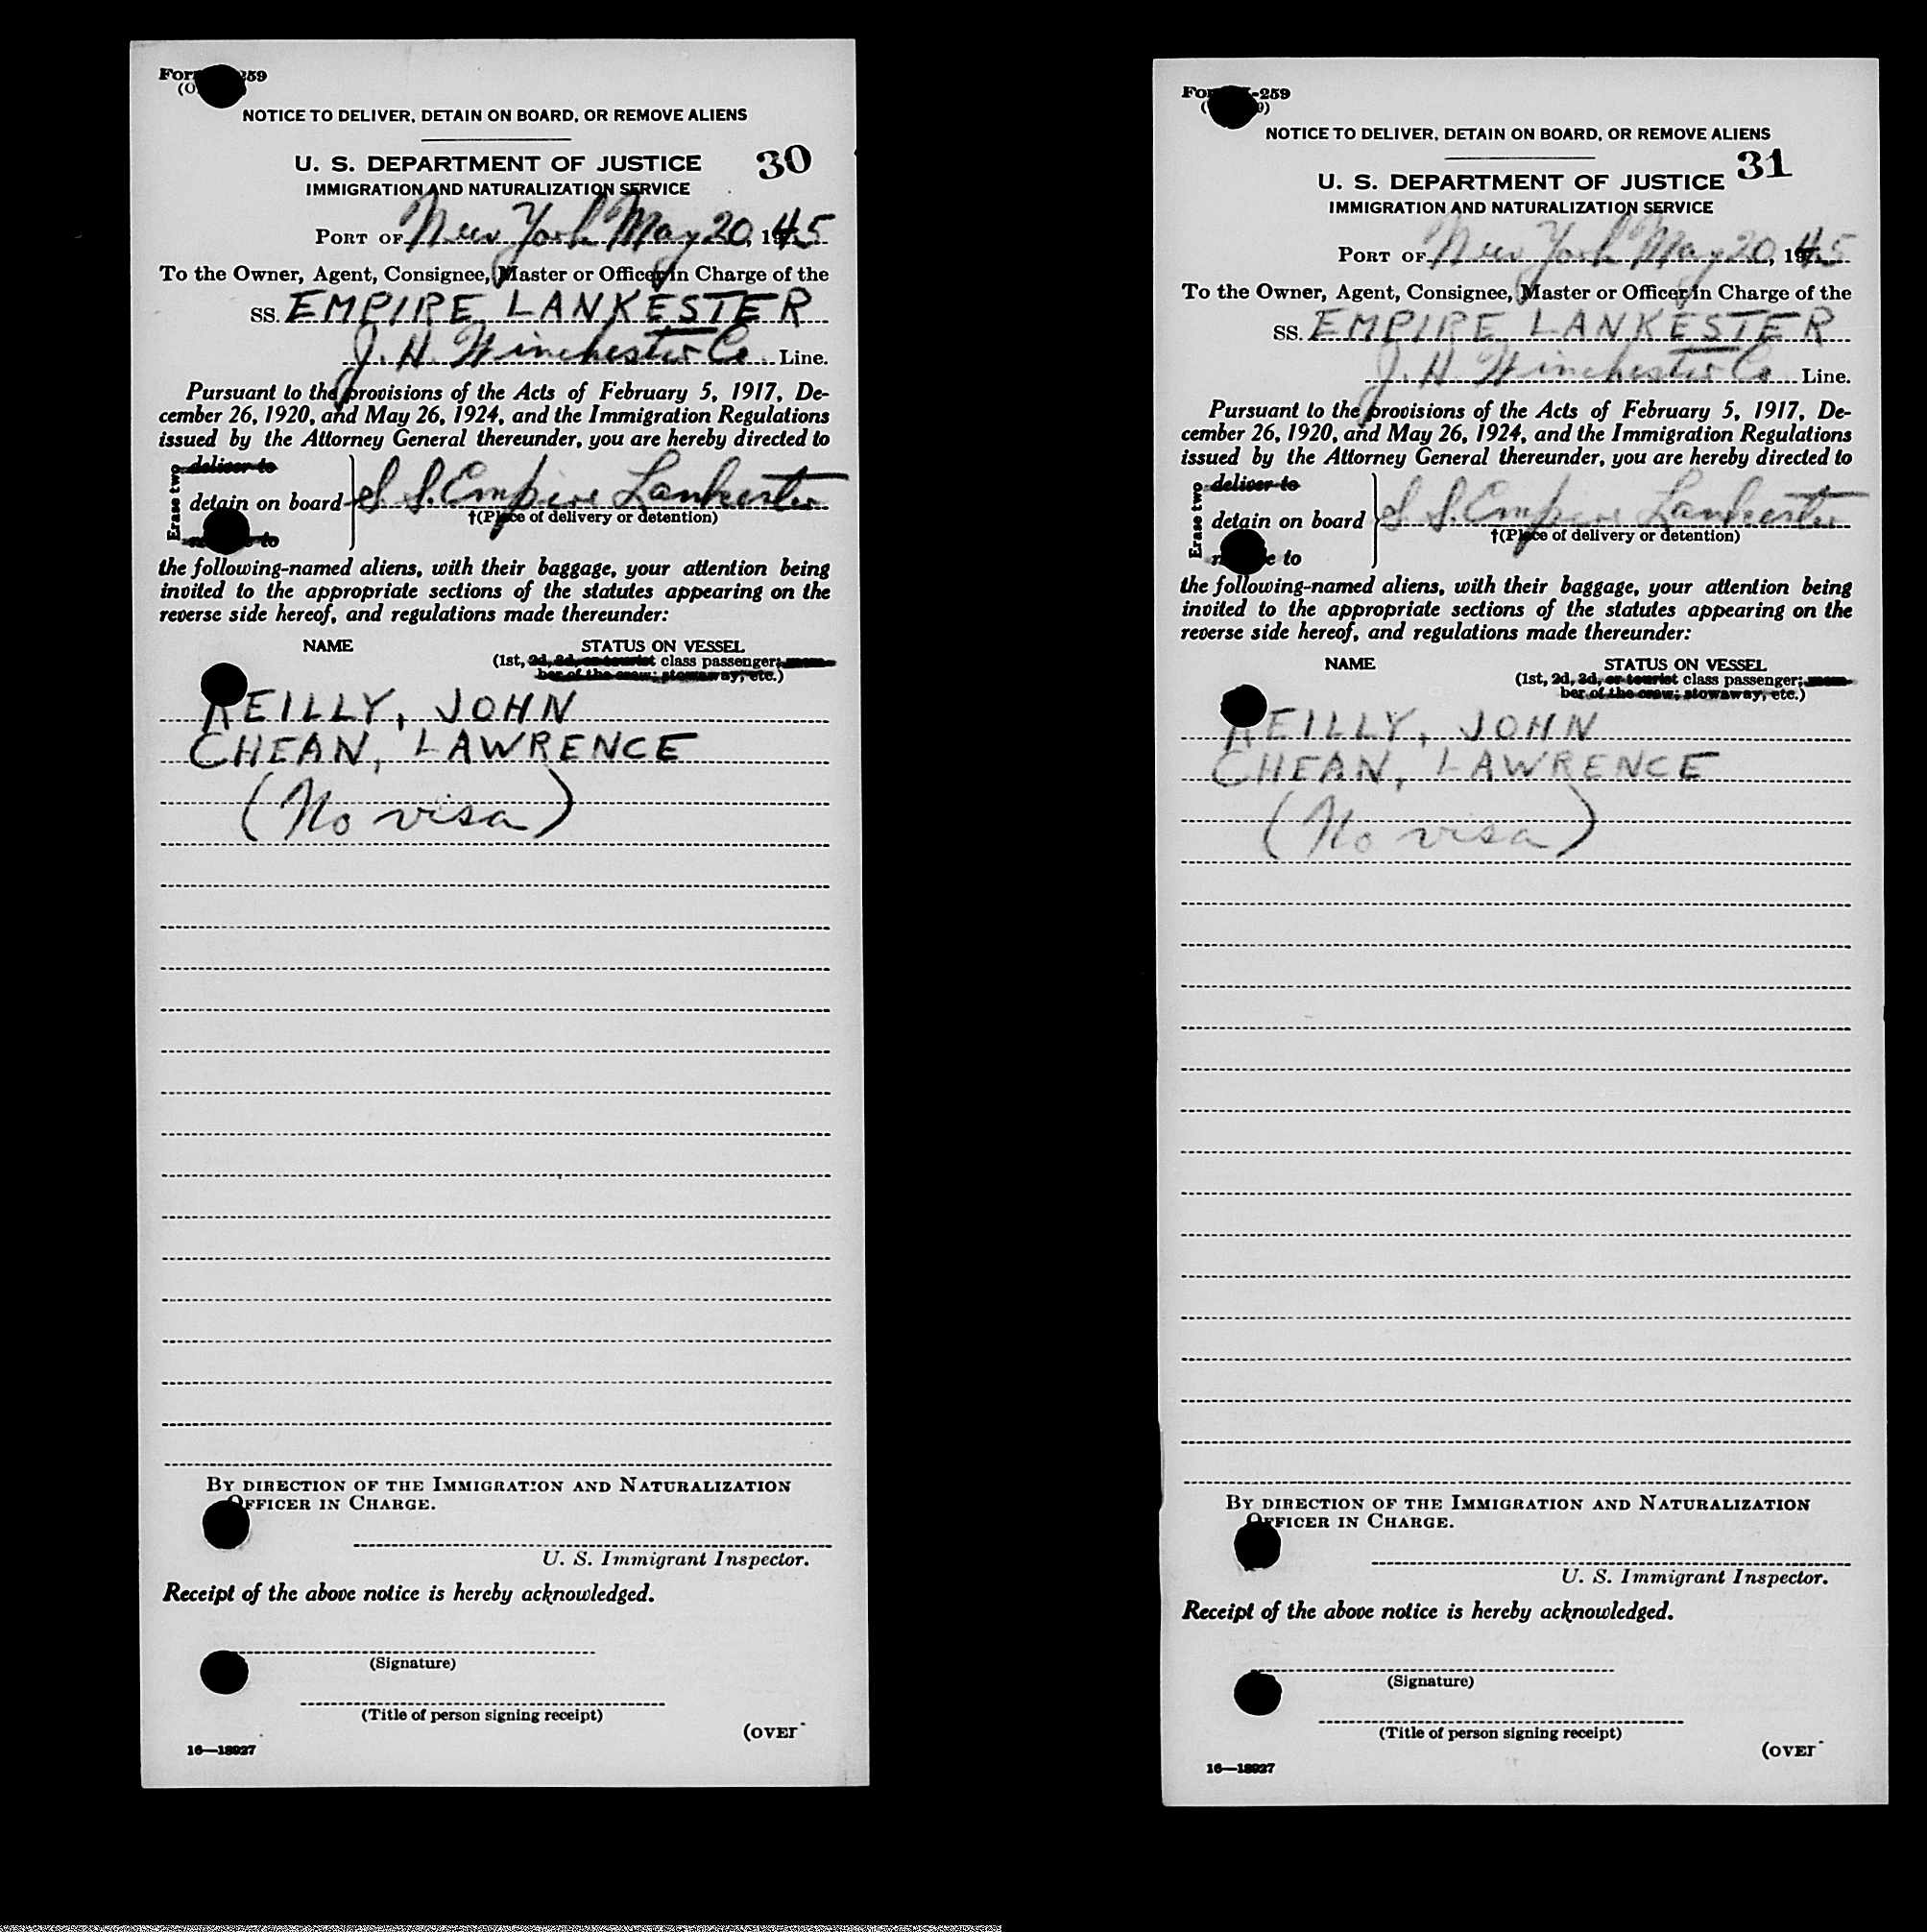 259
NOTICE TO DELIVER, DETAIN ON BOARD, OR REMOVE ALIENS
U. S. DEPARTMENT OF JUSTICE 30
IMMIGRATION AND NATURALIZATION SERVICE
PORT OF New York May 20, 1945
To the Owner, Agent, Consignee, Master or Officer in Charge of the
SS. EMPIRE LANKESTER
J. H. Winchester Co Line.
Pursuant to the provisions of the Acts of February 5, 1917, De-
cember 26, 1920, and May 26, 1924, and the Immigration Regulations
issued by the Attorney General thereunder, you are hereby directed to
Erase two
deliver to
detain on board S S. Empire Lankester
to
†(Place of delivery or detention)
the following-named aliens, with their baggage, your attention being
invited to the appropriate sections of the statutes appearing on the
reverse side hereof, and regulations made thereunder:
NAME STATUS ON VESSEL
(1st, 2d, 3d, or tourist class passenger; mem-
ber of the crew; stowaway, etc.)
REILLY, JOHN
CHEAN, LAWRENCE
(No visa)
BY DIRECTION OF THE IMMIGRATION AND NATURALIZATION
OFFICER IN CHARGE.
U. S. Immigrant Inspector.
Receipt of the above notice is hereby acknowledged.
(Signature)
(Title of person signing receipt)
(OVER
16—18927
-259
NOTICE TO DELIVER, DETAIN ON BOARD, OR REMOVE ALIENS
U. S. DEPARTMENT OF JUSTICE 31
IMMIGRATION AND NATURALIZATION SERVICE
PORT OF New York May 20, 1945
To the Owner, Agent, Consignee, Master or Officer in Charge of the
SS. EMPIRE LANKESTER
J. H. Winchester Co Line.
Pursuant to the provisions of the Acts of February 5, 1917, De-
cember 26, 1920, and May 26, 1924, and the Immigration Regulations
issued by the Attorney General thereunder, you are hereby directed to
Erase two
deliver to
detain on board S S. Empire Lankester
to
†(Place of delivery or detention)
the following-named aliens, with their baggage, your attention being
invited to the appropriate sections of the statutes appearing on the
reverse side hereof, and regulations made thereunder:
NAME STATUS ON VESSEL
(1st, 2d, 3d, or tourist class passenger; mem-
ber of the crew; stowaway, etc.)
REILLY, JOHN
CHEAN, LAWRENCE
(No visa)
BY DIRECTION OF THE IMMIGRATION AND NATURALIZATION
OFFICER IN CHARGE.
U. S. Immigrant Inspector.
Receipt of the above notice is hereby acknowledged.
(Signature)
(Title of person signing receipt)
(OVER
16—18927